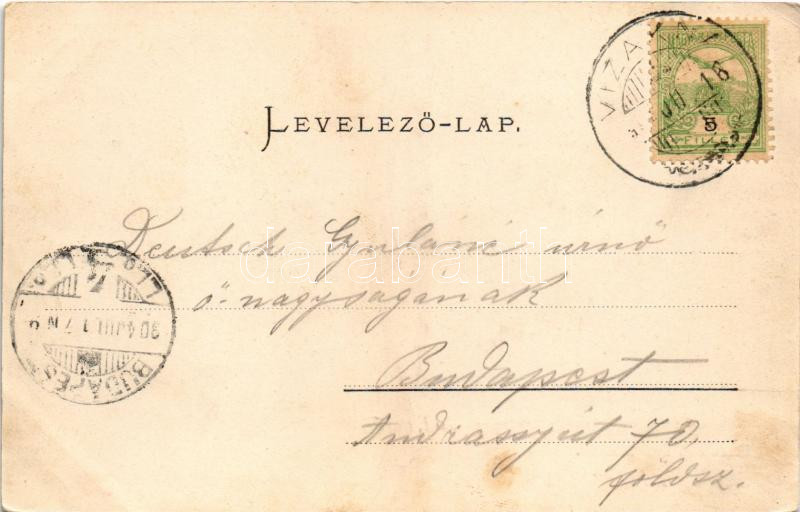 LEVELEZŐ-LAP.
VIZAKNA
16
5
FILLÉR
Deutsch Gyuláné úrnő
ő-nagyságának
Budapest
Andrássy út 70
földsz.
BUDAPEST
904 JUL 17
darabanth